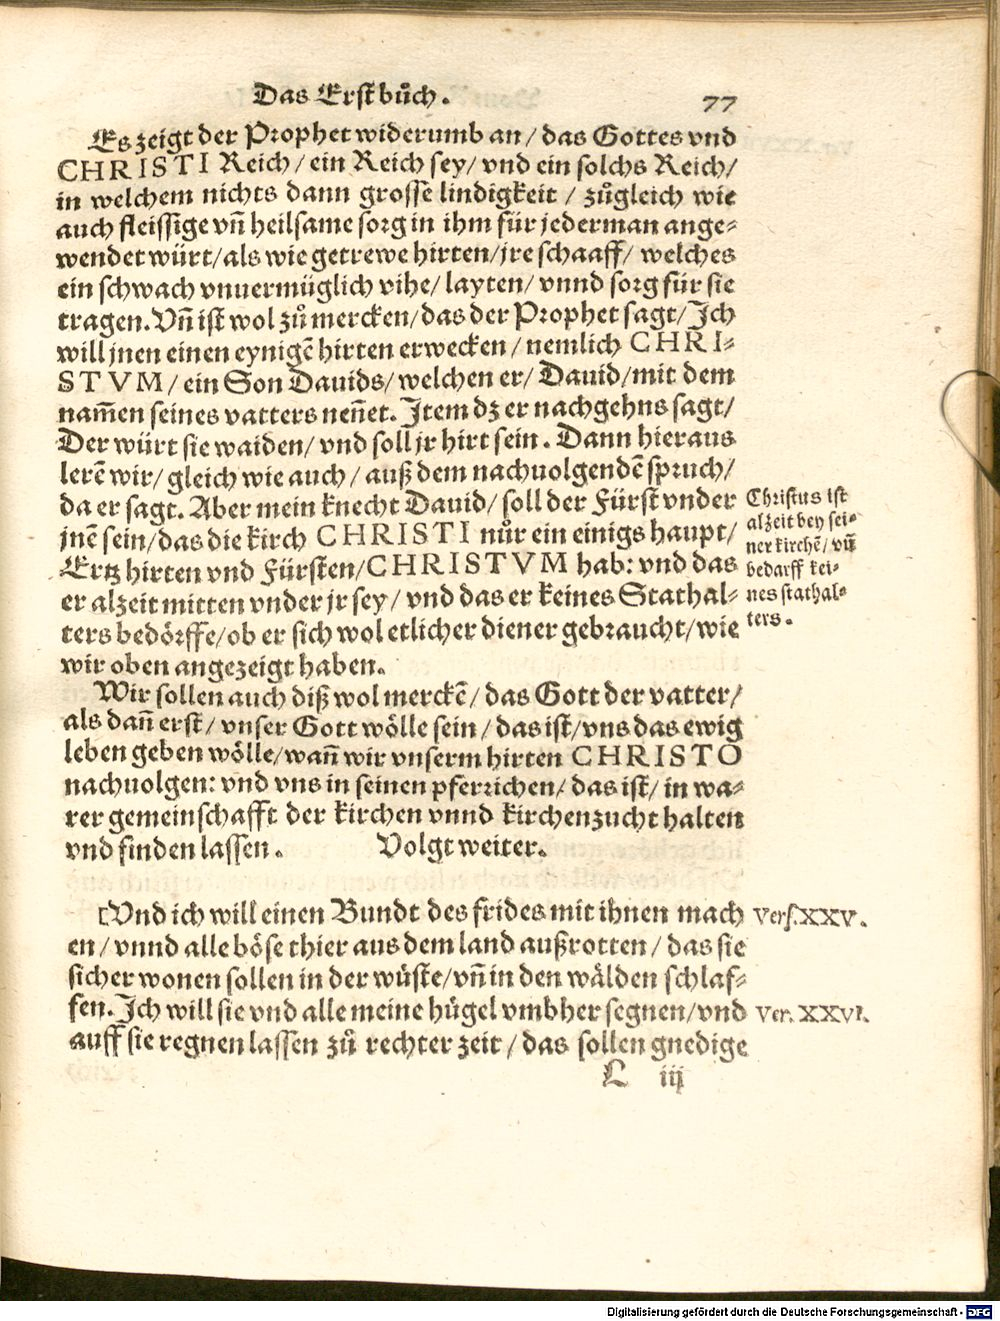 Das Erst bůch.
77
Es zeigt der Prophet widerumb an / das Gottes vnd
CHRISTI Reich / ein Reich sey / vnd ein solchs Reich /
in welchem nichts dann grosse lindigkeit / zůgleich wie
auch fleissige vñ heilsame sorg in ihm für jederman ange-
wendet würt / als wie getrewe hirten / jre schaaff / welches
ein schwach vnuermüglich vihe / layten / vnnd sorg für sie
tragen. Vñ ist wol zů mercken / das der Prophet sagt / Ich
will jnen einen eynigẽ hirten erwecken / nemlich CHRI-
STVM / ein Son Dauids / welchen er / Dauid / mit dem
nam̃en seines vatters neñet. Item dz er nachgehns sagt /
Der würt sie waiden / vnd soll jr hirt sein. Dann hieraus
lerẽ wir / gleich wie auch / auß dem nachuolgendẽ spruch /
da er sagt. Aber mein knecht Dauid / soll der Fürst vnder
jnẽ sein / das die kirch CHRISTI nůr ein einigs haupt /
Ertz hirten vnd Fürsten / CHRISTVM hab: vnd das
er alzeit mitten vnder jr sey / vnd das er keines Stathal-
ters bedörffe / ob er sich wol etlicher diener gebraucht / wie
wir oben angezeigt haben.
Christus ist
alzeit bey sei-
ner kirchẽ / vñ
bedarff kei-
nes stathal-
ters.
Wir sollen auch diß wol merckẽ / das Gott der vatter /
als dañ erst / vnser Gott wölle sein / das ist / vns das ewig
leben geben wölle / wañ wir vnserm hirten CHRISTO
nachuolgen: vnd vns in seinen pferrichen / das ist / in wa-
rer gemeinschafft der kirchen vnnd kirchenzucht halten
vnd finden lassen. Volgt weiter.
[Vnd ich will einen Bundt des frides mit ihnen mach
Vers. XXV.
en / vnnd alle böse thier aus dem land außrotten / das sie
sicher wonen sollen in der wůste / vñ in den wälden schlaf-
fen. Ich will sie vnd alle meine hůgel vmbher segnen / vnd
Ver. XXVI.
auff sie regnen lassen zů rechter zeit / das sollen gnedige
L iij
Digitalisierung gefördert durch die Deutsche Forschungsgemeinschaft - DFG